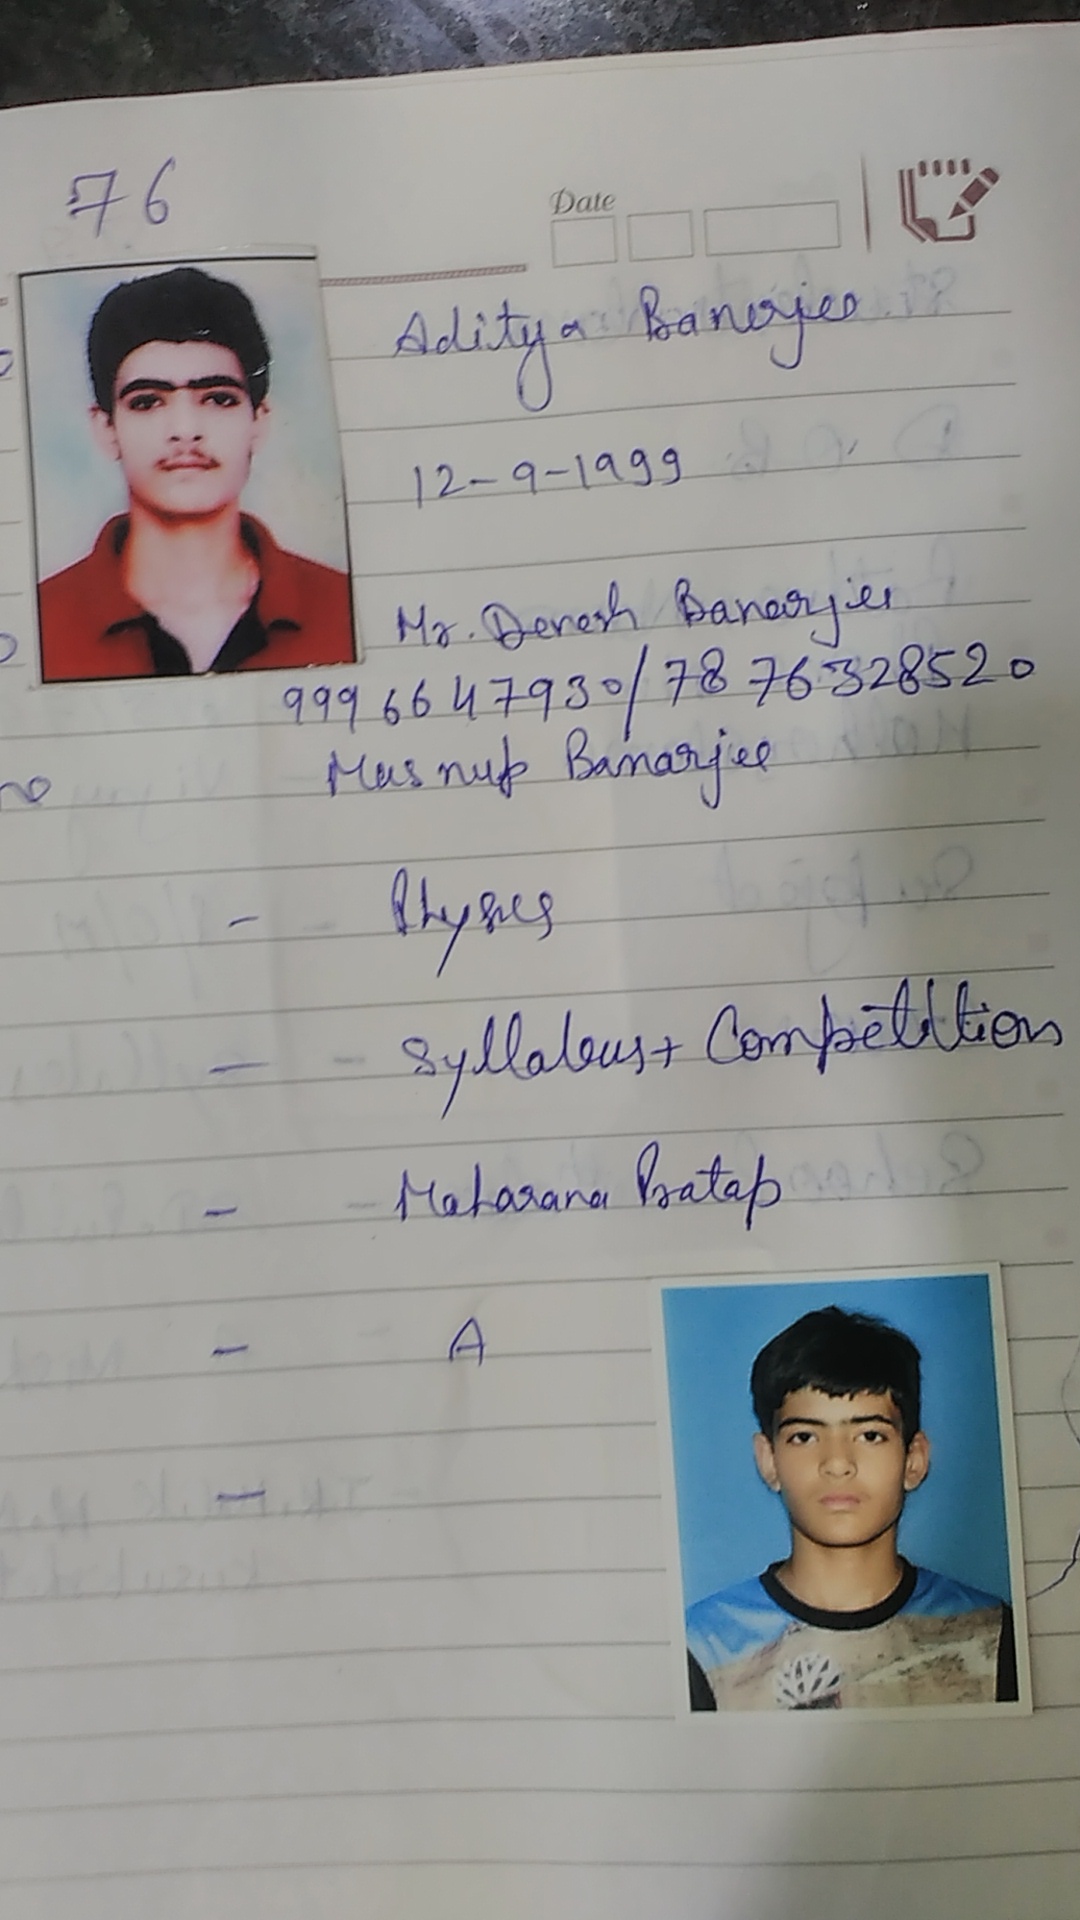 76
Date
Aditya Banerjee
12-9-1999
Mr. Denesh Banerjee
9996647930/7876328520
Banarjee
- Physics
- Syllabus + Competition
- Maharana Pratap
- A
-